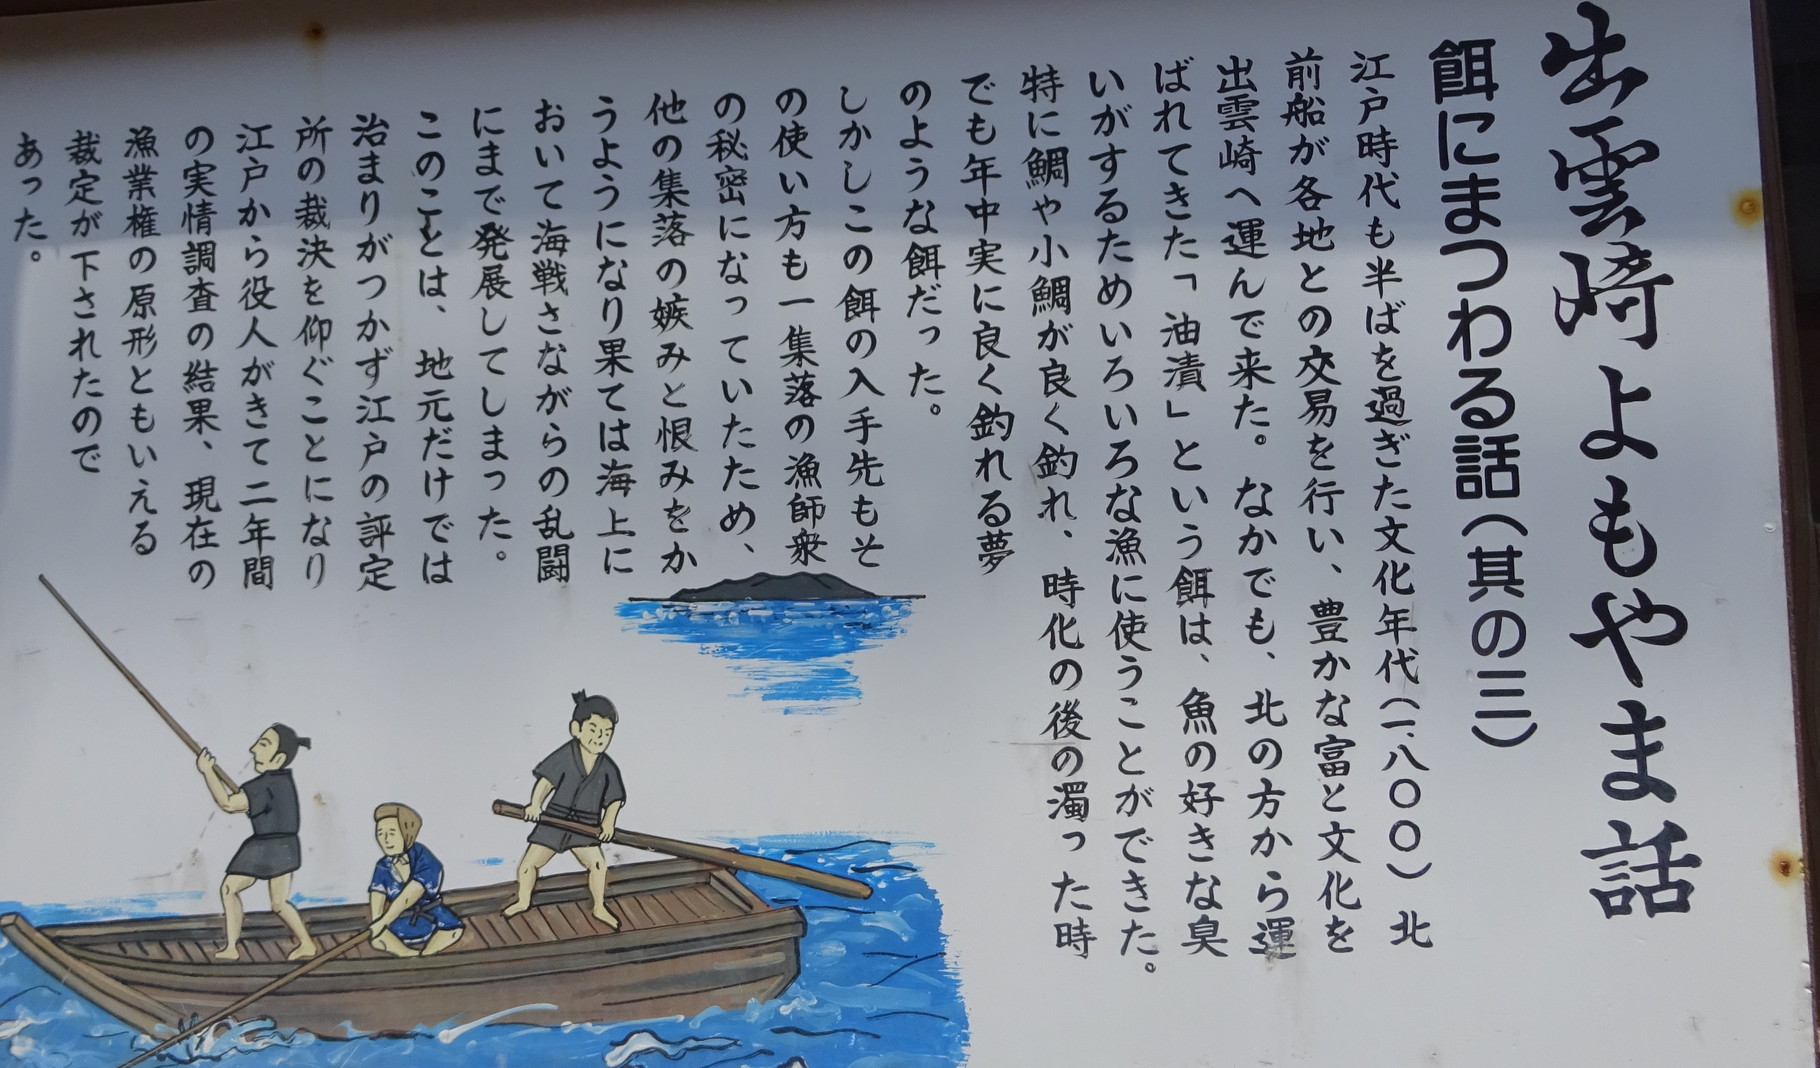 出雲崎よもやま話
餌にまつわる話(其の三)
江戸時代も半ばを過ぎた文化年代(一、八〇〇)北
前船が各地との交易を行い、豊かな富と文化を
出雲崎へ運んで来た。なかでも、北の方から運
ばれてきた「油漬」という餌は、魚の好きな臭
いがするためいろいろな漁に使うことができた。
特に鯛や小鯛が良く釣れ、時化の後の濁った時
でも年中実に良く釣れる夢
のような餌だった。
しかしこの餌の入手先もそ
の使い方も一集落の漁師衆
の秘密になっていたため、
他の集落の嫉みと恨みをか
うようになり果ては海上に
おいて海戦さながらの乱闘
にまで発展してしまった。
このことは、地元だけでは
治まりがつかず江戸の評定
所の裁決を仰ぐことになり
江戸から役人がきて二年間
の実情調査の結果、現在の
漁業権の原形ともいえる
裁定が下されたので
あった。